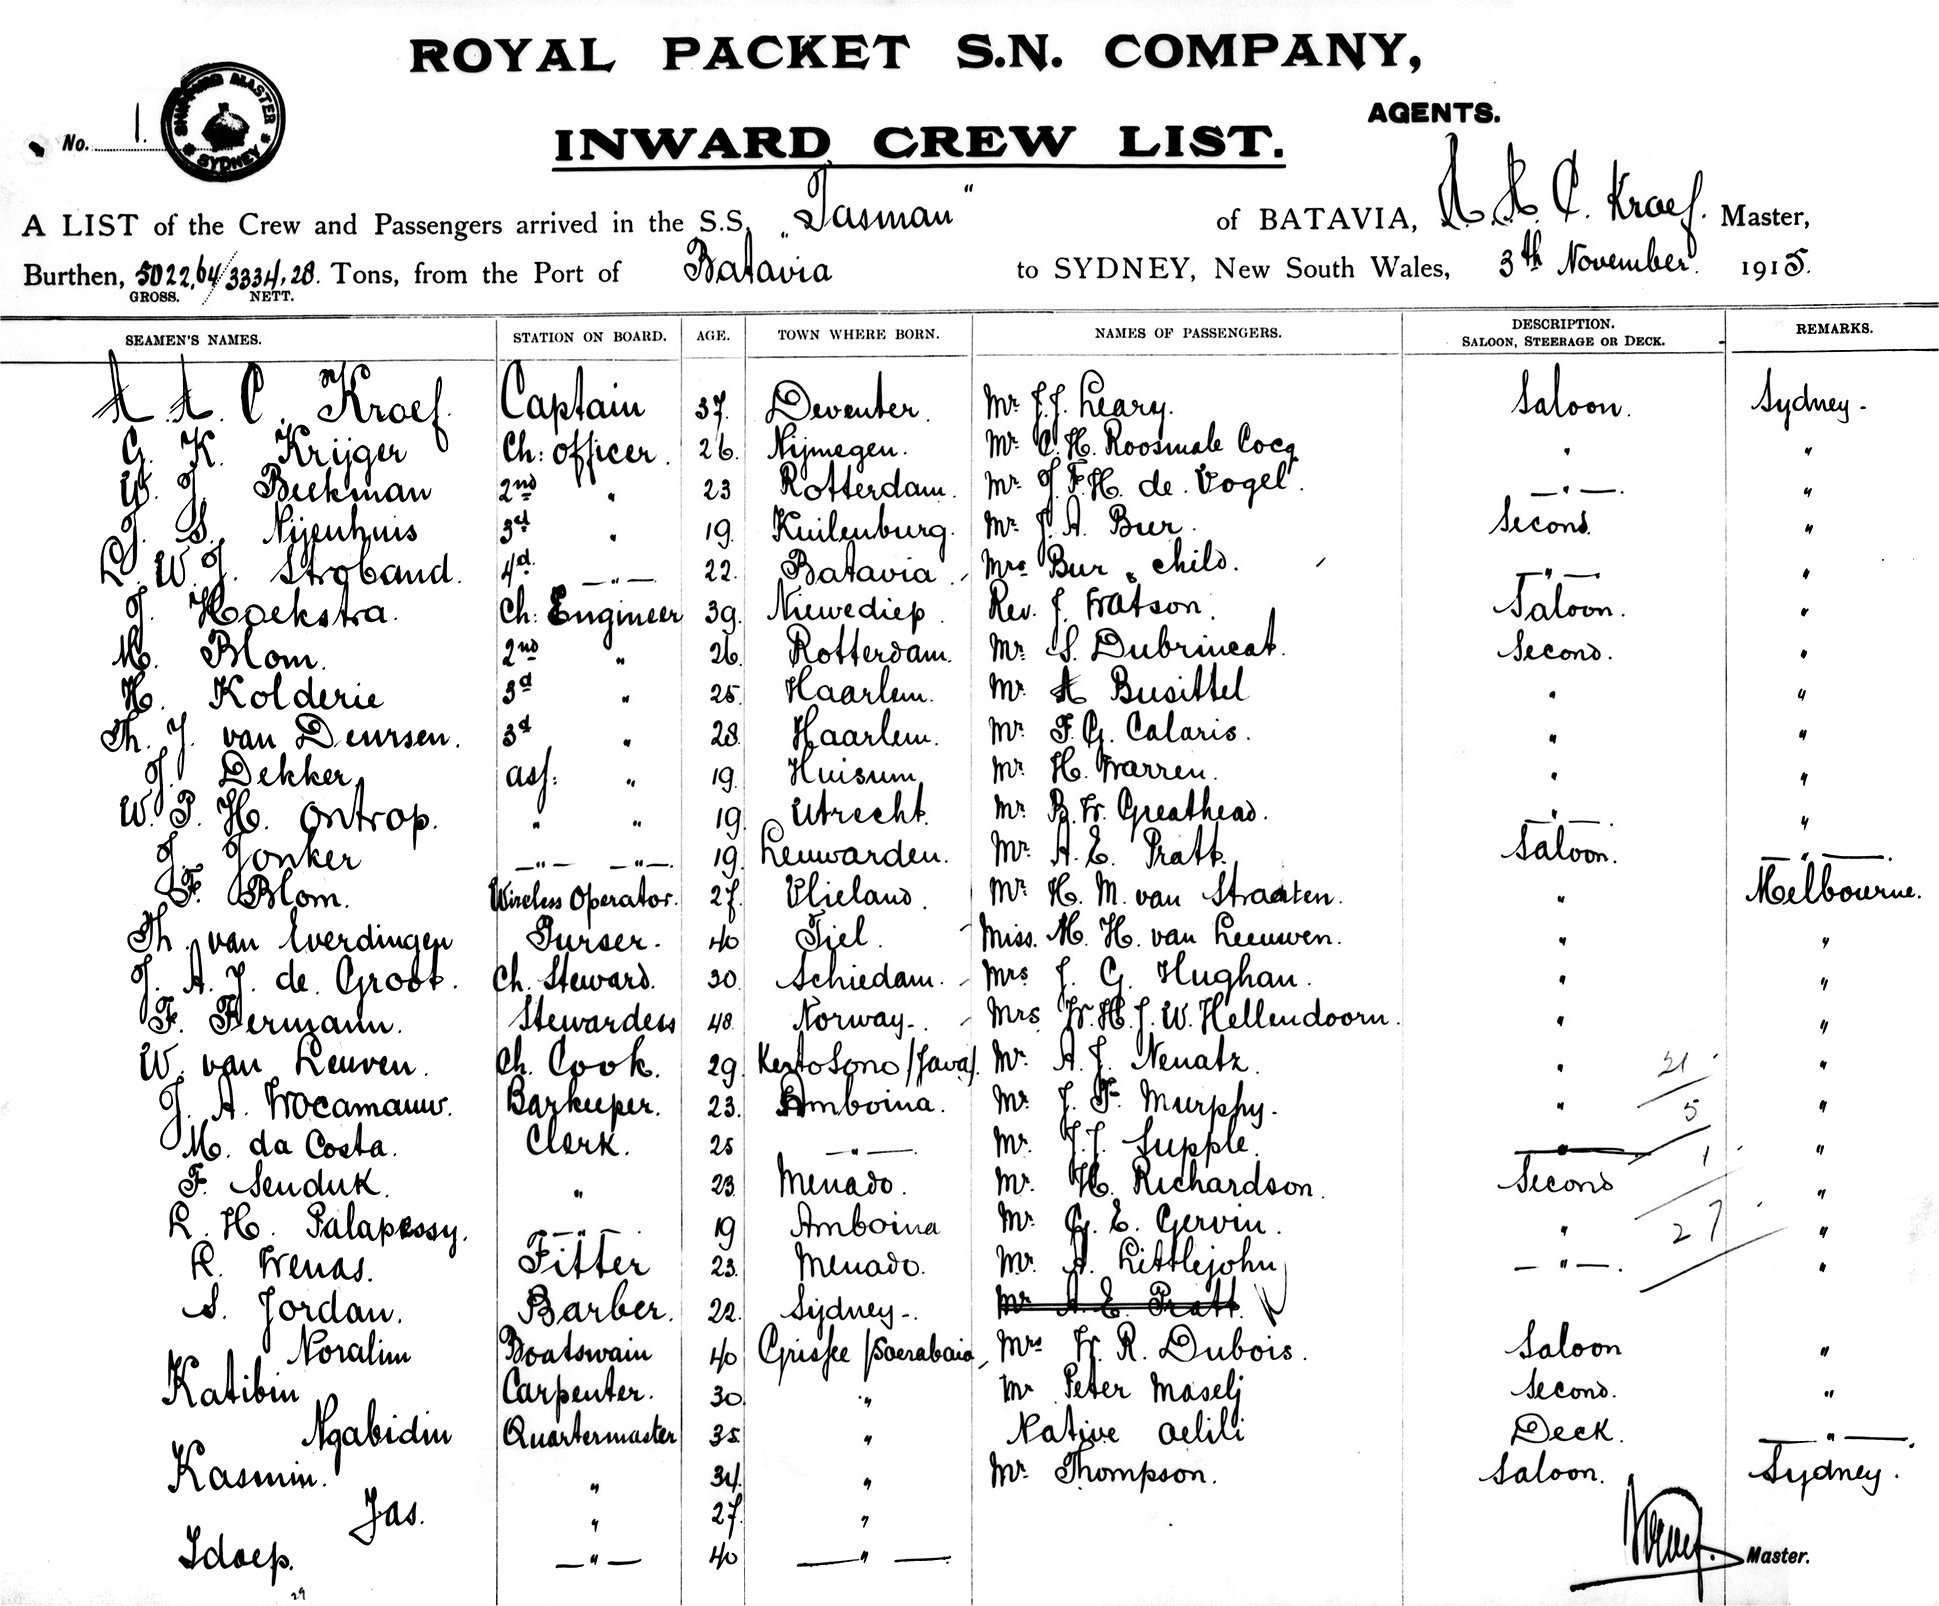 ROYAL PACKET S.N. COMPANY,
AGENTS.
No. 1.
SHIPPING MASTER SYDNEY
INWARD CREW LIST.
A LIST of the Crew and Passengers arrived in the S.S. „Tasman" of BATAVIA, A. A. C. Kroef. Master,
Burthen, 5022,64/3334,28. Tons, from the Port of Batavia to SYDNEY, New South Wales, 3th November. 1915.
GROSS. NETT.
SEAMEN'S NAMES. STATION ON BOARD. AGE. TOWN WHERE BORN. NAMES OF PASSENGERS. DESCRIPTION. SALOON, STEERAGE OR DECK. REMARKS.
A. A. C. Kroef. Captain 37. Deventer. Mr. J.J. Leary. Saloon. Sydney-
G. K. Krijger Ch: officer. 26. Nijmegen. Mr. C. H. Roosmale Cocq " "
W. J. Beekman 2nd " 23 Rotterdam. Mr. J. F. H. de Vogel. —"—. "
J. S. Nijenhuis 3d " 19. Kuilenburg. Mr. J. A. Bur. Second. "
L. W. J. Stroband. 4d. —"— 22. Batavia. Mrs Bur & child. —"— "
J. Hoekstra. Ch: Engineer 39. Niewediep. Rev. J. Watson. Saloon. "
M. Blom. 2nd " 26. Rotterdam. Mr. S. Dubrincat. Second. "
H. Kolderie 3d " 25 Haarlem. Mr. A Busittel " "
Th. J. van Deursen. 3d " 28. Haarlem. Mr. F. G. Calaris. " "
J. Dekker asf: " 19. Huisum Mr. H. Warren. " "
W. P. H. Ontrop. " " 19. Utrecht. Mr. B. W. Greathead. —"—. "
J. Jonker —"— —"—. 19. Leuwarden. Mr. A. E. Pratt. Saloon. —"—.
F. Blom. Wireless Operator. 27. Vlieland. Mr. H. M. van Straaten. " Melbourne.
Th. van Everdingen Purser. 40 Tiel. Miss. M. H. van Leeuwen. " "
J. A. J. de Groot. Ch. Steward. 30. Schiedam. Mrs J. G. Hughan. " "
F. Fermann. Stewardess 48. Norway-. Mrs W. H. J. W. Hellendoorn. " "
W. van Leuven. Ch. Cook. 29. Kertosono /Java/. Mr. A. J. Neuatz. " 21 "
J. A. Wocamauw. Barkeeper. 23. Amboina. Mr. J. F. Murphy. " 5 "
M. da Costa. Clerk. 25 —"—. Mr. J.J. Supple. —"— 1 "
F. Senduk. " 23. Menado. Mr. H. Richardson. Second "
L. H. Palapessy. —"— 19 Amboina Mr. G. E. Gervin. " 27 "
R. Wenas. Fitter 23. Menado. Mr. A. Littlejohn —"—. "
S. Jordan. Barber. 22. Sydney-. Mr. A. E. Pratt.
Noralim Boatswain 40 Grissee /Soerabaia Mrs W. R. Dubois. Saloon "
Katibin Carpenter. 30. " Mr Peter Maselj Second. "
Ngabidin Quartermaster 35. " Native Oelili Deck. —"—.
Kasmin. " 34. " Mr. Thompson. Saloon. Sydney.
Jas. " 27. "
Idoep. —"— 40 —"—. Kroef. Master.
29